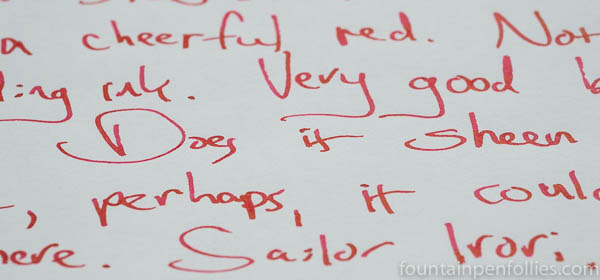 a cheerful red. Not
ling ink. Very good
Does it sheen
, perhaps, it could
here. Sailor Irori.
fountainpenfollies.com